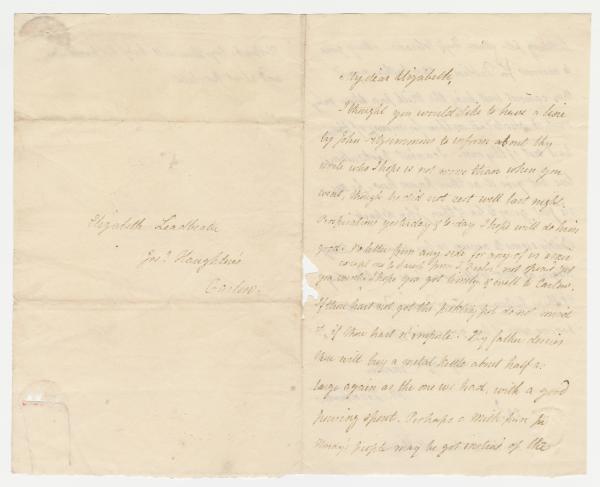 Elizabeth Leadbeater
Jno. Haughton's
Carlow.
My dear Elizabeth,
I thought you would like to have a line
by John Fitzsimmons to inform about thy
who I hope is not worse than when you
went, though he did not rest well last night.
Perspirations yesterday & to day I hope will do him
good. No letter from any side for any of us since
except one to Sarah from not opened yet
you went. I hope you got timely & well to Carlow.
If thou hast not got the pot do not mind
it, if thou hast it imports. Thy father desires
thou will buy a metal kettle about half as
large again as the one we had, with a good
pouring spout. Perhaps a milk pan for
people may be got instead of the